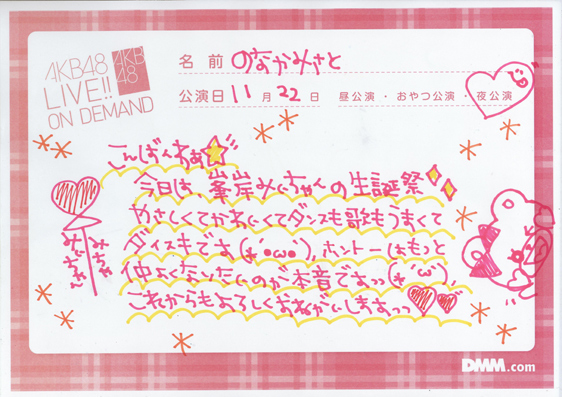 AKB48
LIVE!!
ON DEMAND
AKB
48
名前 のなかみさと
公演日 11月22日 昼公演・おやつ公演・夜公演
こんばんわぁ
今日は、峯岸みぃちゃんの生誕祭
やさしくてかわいくてダンスも歌もうまくて
ダイスキです(*´•ω•`), ホントーはもっと
仲よくなりたいのが本音ですっっ(*´ω`),
これからもよろしくおねがいしますっっ
みちゃ
みぃちゃん
DMM.com